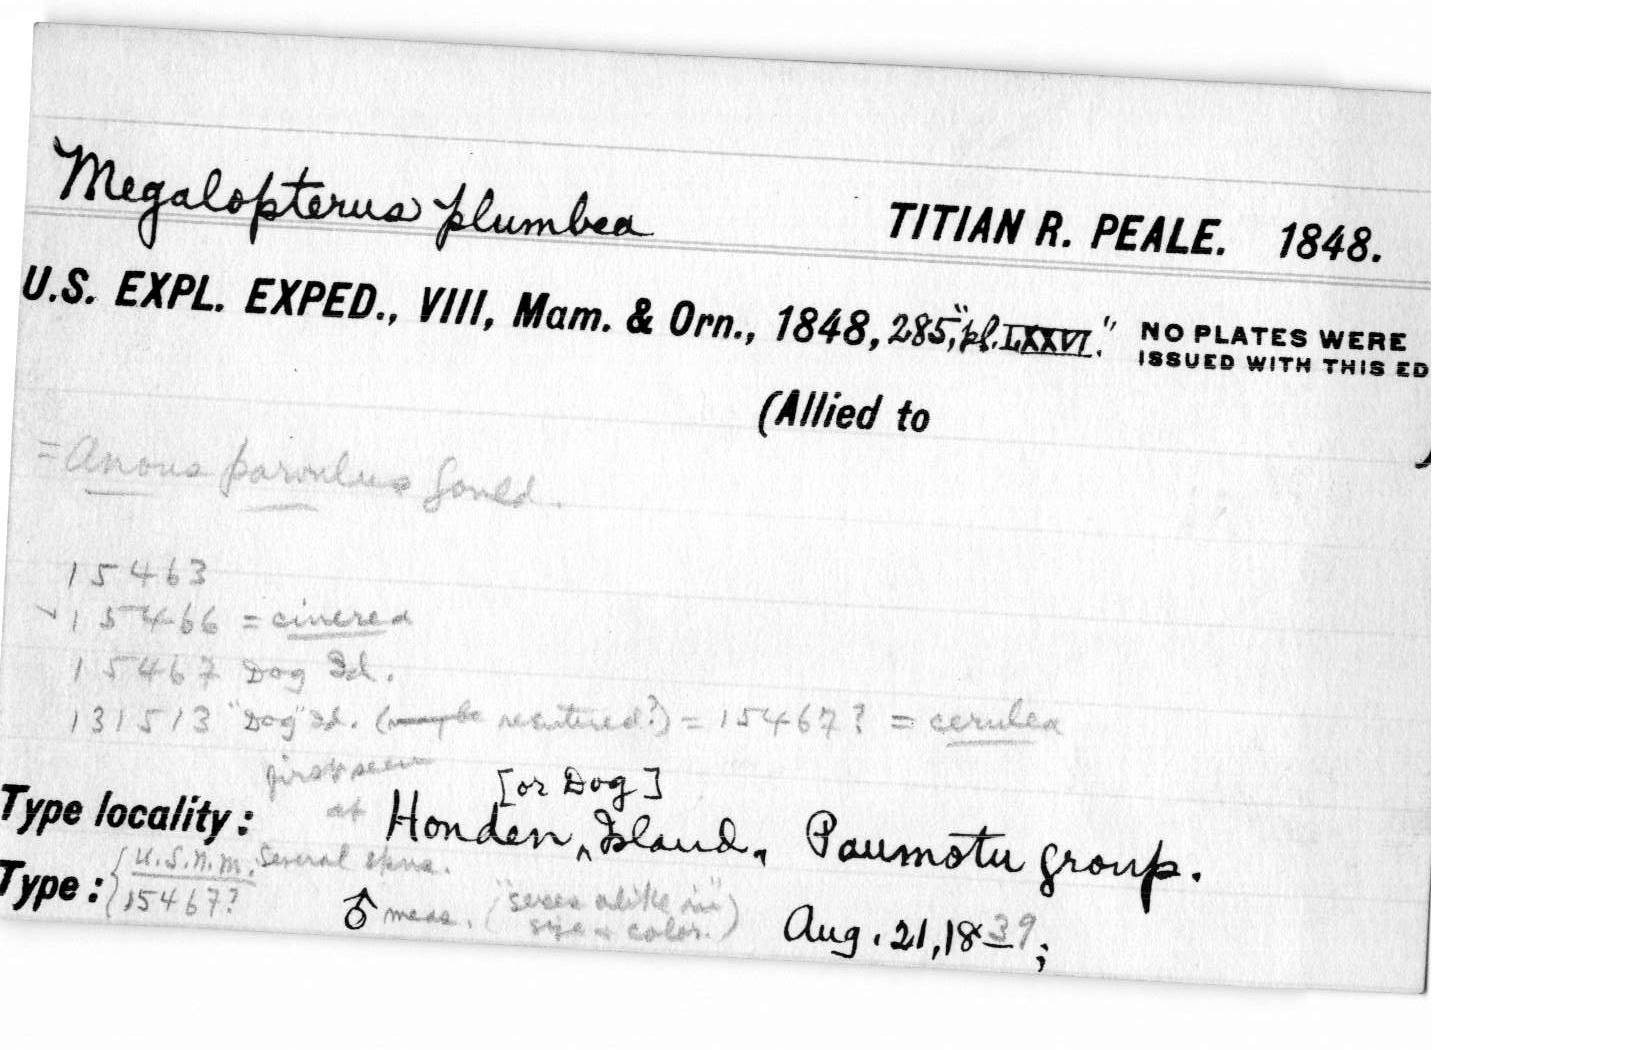 Megalopterus plumbea TITIAN R. PEALE. 1848.
U.S. EXPL. EXPED., VIII, Mam. & Orn., 1848, 285, "pl. LXXVI." NO PLATES WERE
ISSUED WITH THIS ED
(Allied to )
= Anous parvulus Gould.
15463
✓ 15466 = cinerea
15467 Dog Id.
131513 "Dog" Id. ( = 15467? = cerulea
first seen
at
[or Dog]
Type locality: Honden ^ Island, Paumotu group.
Type: { U.S.N.M. Several spms.
15467? ♂ meas. ("sexes alike in"
size & color.) Aug. 21, 1839;